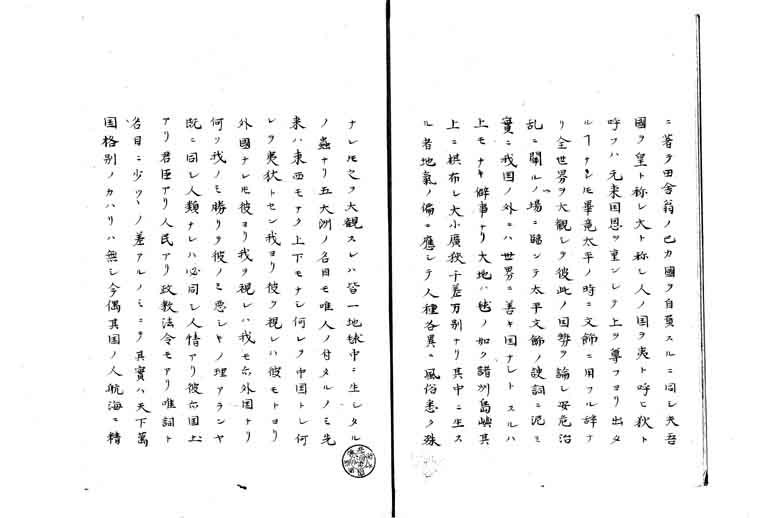 ニ著ク田舎翁ノ己カ國ヲ自負スルニ同シ夫吾
國ヲ皇ト称シ大ト称シ人ノ国ヲ夷ト呼ヒ狄ト
呼フハ元来国恩ヲ重ンシテ上ヲ尊フヨリ出タ
ルヿナレ𪜈畢竟太平ノ時ニ文飾ニ用フル辞ナ
リ全世界ヲ大觀シテ彼此ノ国勢ヲ論シ安危治
乱ニ關ルノ場ニ臨ンテ太平文飾ノ諛詞ニ泥ミ
實ニ我国ノ外ニハ世界ニ善キ国ナシトスルハ
上モナキ僻事ナリ大地ハ毬ノ如ク諸州島嶼其
上ニ棋布シ大小廣狭千差万別ナリ其中ニ生ス
ル者地氣ノ偏ニ應シテ人種各異ニ風俗悉ク殊
ナレ𪜈之ヲ大觀スレハ皆一地球中ニ生シタル
ノ蟲ナリ五大洲ノ名目モ唯人ノ付タルノミ元
来ハ東西モナク上下モナシ何レヲ中国トシ何
レヲ夷狄トセン我ヨリ彼ヲ視レハ彼モトヨリ
外國ナレ𪜈彼ヨリ我ヲ視レハ我モ亦外国ナリ
何ソ我ノミ勝リ彼ノミ悪シキノ理アランヤ
既ニ同シ人類ナレハ必同シ人情アリ彼亦国土
アリ君臣アリ人民アリ政教法令モアリ唯詞ト
名目ニ少ツヽノ差アルノミニテ其實ハ天下萬
国格別ノカハリハ無シ今偶其国ノ人航海ニ精